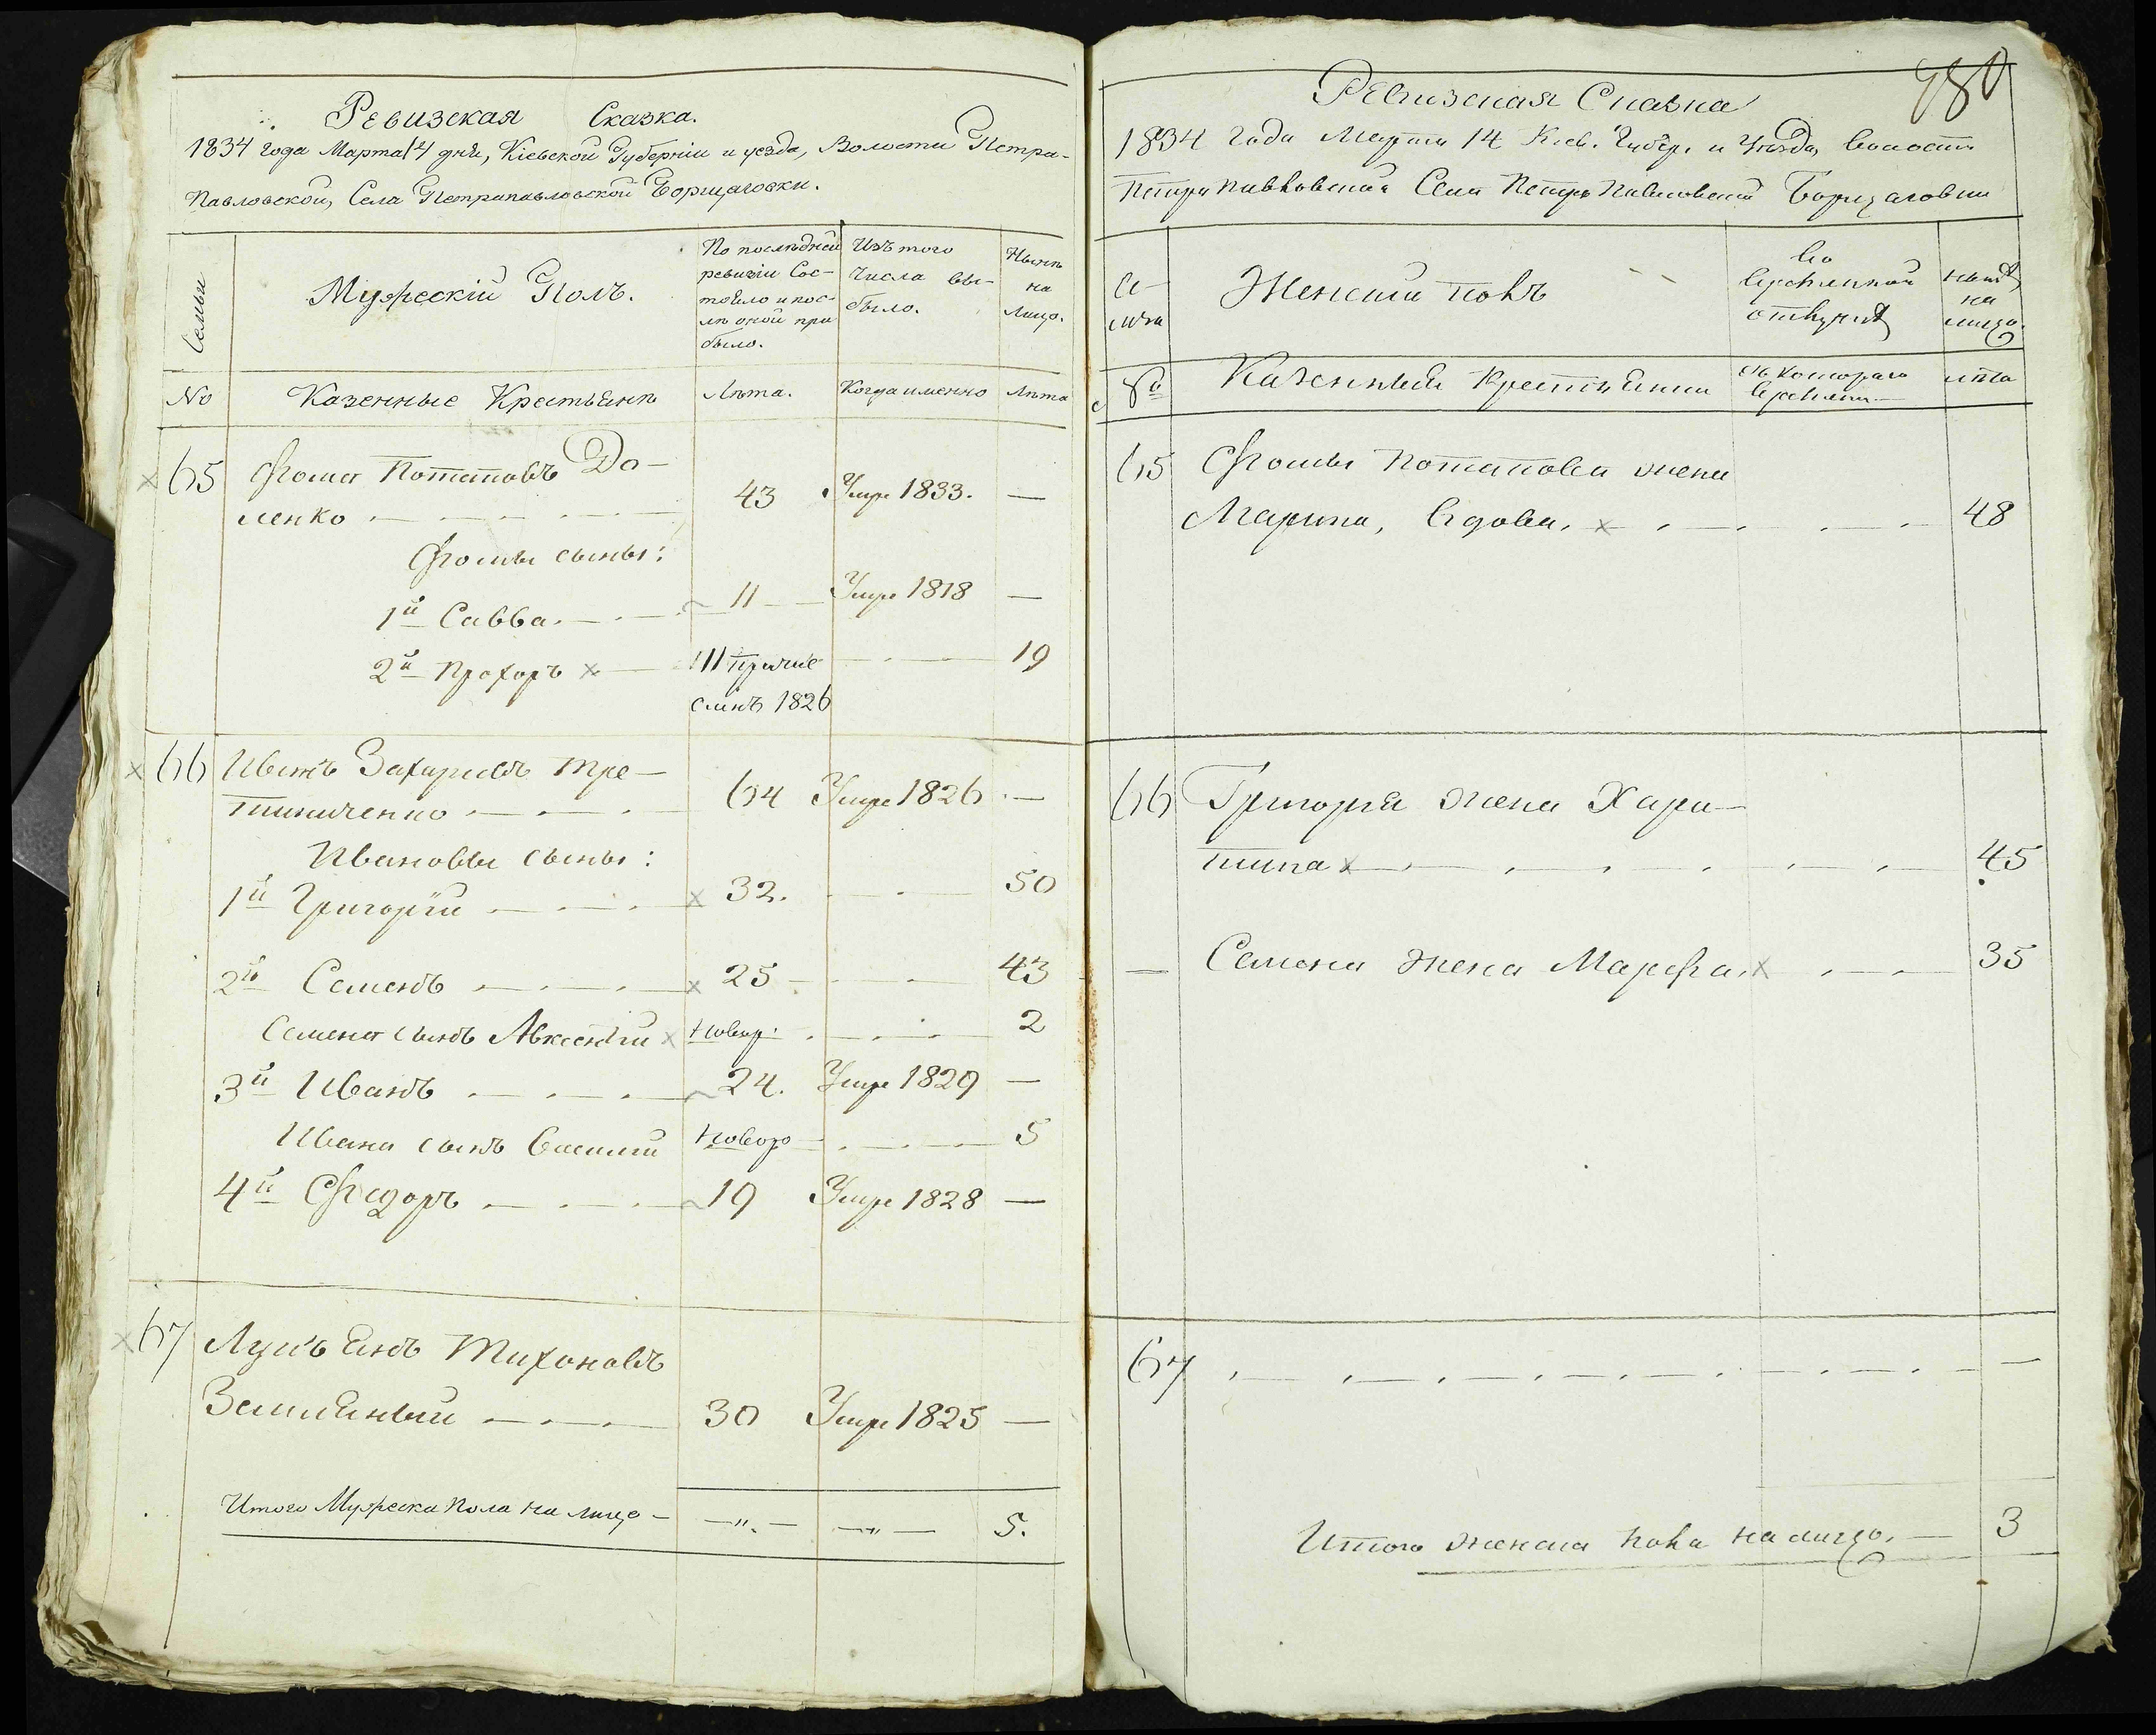 Ревизская Сказка.
1834 года Марта 14 дня, Кіевской Губерніи и уезда, Волости Петра-
павловской, Села Петрапавловской Борщаговки.
Семьи
Мужескій Полъ.
По последней ревизіи Сос-
тояло и пос-
ле оной при
было.
Изъ того
числа вы-
было.
Ныне
на
лицо.
No
Казенные Крестьяне
Лета.
Когда именно
Лета
65 Фома Потаповъ До-
ленко 43 Умре 1833. —
Фомы сыны:
1й Савва 11 Умре 1818 —
2й Прохоръ 19
причи
сленъ 1826
66 Иванъ Захаріевъ Тре-
64 Умре 1826 —
Ивановы сыны:
1й Григорій 32. 50
2й Семенъ 25 43
Семена сынъ Авксентій новор: 2
3й Иванъ 24. Умре 1829 —
Ивана сынъ Василій новоро 5
4й Федоръ 19 Умре 1828 —
67 Лукъянъ Тихоновъ
Земляный 30 Умре 1825 —
Итого Мужеска пола на лицо — 5.
480
Ревизская Сказка
1834 Года Марта 14 Кіев. Губер. и Уезда, волости
Петра павловской Села Петра павловской Борщаговки
Се-
мьи
Женскій полъ
Во
временной
отлучке
ныне
на
лицо.
№
Казенные Крестьяне
съ котораго
времени
лета
65 Фомы Потапова жена
Марина, вдова. 48
66 Григорія жена Хари-
тина 45
— Семена жена Марфа. 35
67 —
Итого женска пола на лицо. — 3